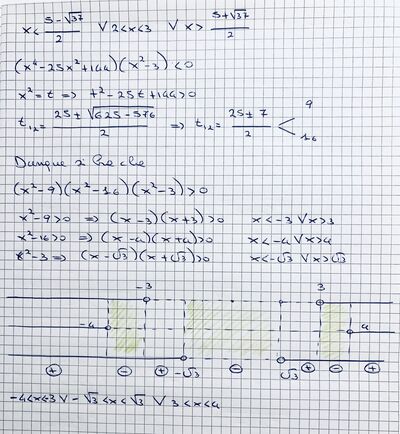 x < (5-√37)/2 ∨ 2<x<3 ∨ x > (5+√37)/2
(x⁴-25x²+144)(x²-3)<0
x²=t => t²-25t+144>0
t₁,₂= (25±√625-576)/2 => t₁,₂= (25±7)/2 < 9 16
Dunque si ha che
(x²-9)(x²-16)(x²-3)>0
x²-9>0 => (x-3)(x+3)>0 x<-3 ∨ x>3
x²-16>0 => (x-4)(x+4)>0 x<-4 ∨ x>4
x²-3 => (x-√3)(x+√3)>0 x<-√3 ∨ x>√3
-3 3
-4 4
-√3 √3
+ - + - + - +
-4<x<3 ∨ -√3<x<√3 ∨ 3<x<4